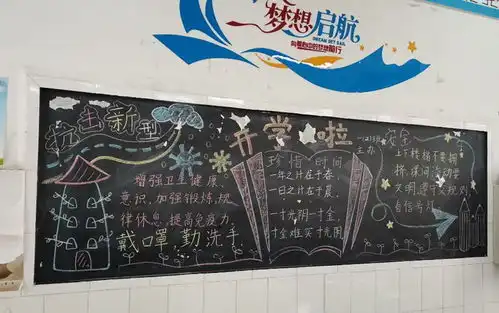 梦想启航
DREAM SET SAIL
向着心中的梦想前行
抗击新型
增强卫生健康
意识,加强锻炼,规
律休息,提高免疫力,
戴口罩,勤洗手
开学啦
珍惜时间
一年之计在于春
一日之计在于晨
一寸光阴一寸金,
寸金难买寸光阴
主办
安全
上下楼梯不要拥
挤,课间活动要
文明,遵守规则